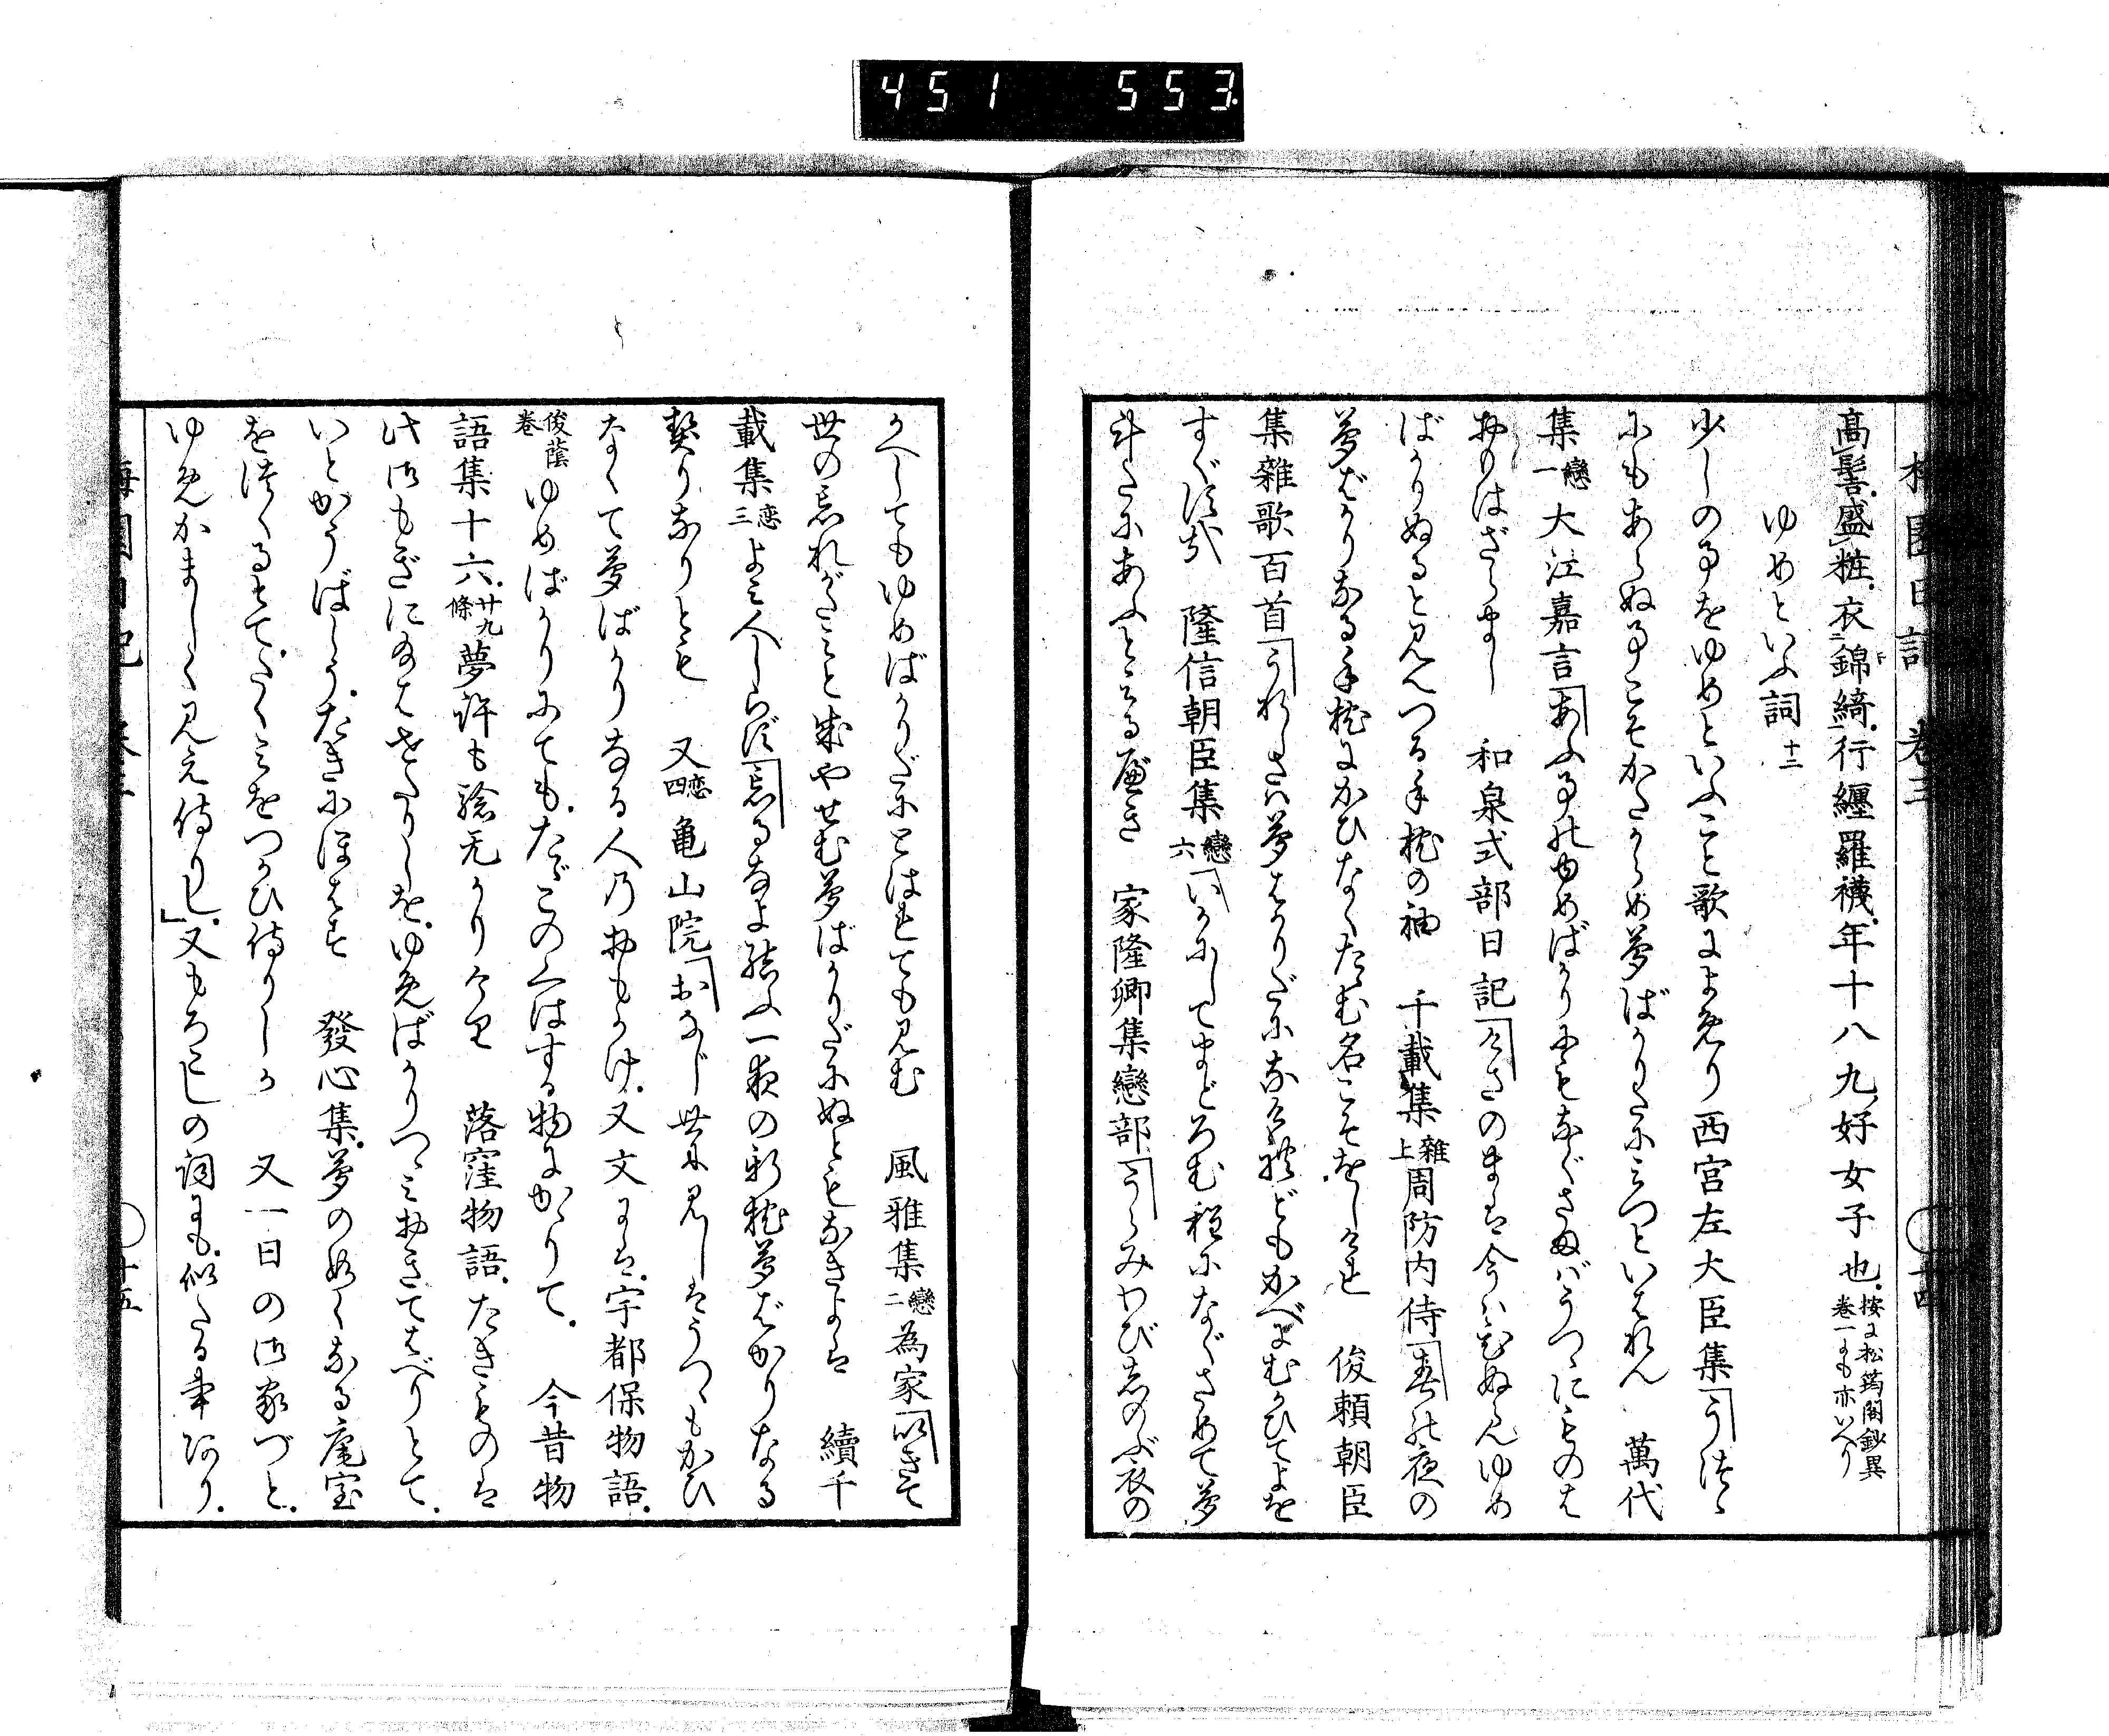 451 553
梅園日記 巻三 十四
高髻盛粧衣錦綺行纏羅襪年十八九好女子也按に松筠閣鈔異巻一にも亦いへり
ゆめといふ詞 十三
少しの事をゆめといふこと歌によめり西宮左大臣集「うつゝ
にもあらぬ事こそかたからめ夢ばかりだにみつといはれん 萬代
集戀一大江嘉言「あふ事のゆめばかりにもなぐさまばうつゝにものは
おもはざらまし 和泉式部日記「けさのまは今はひぬらんゆめ
ばかりぬるとみえつる手枕の袖 千載集雜上周防内侍「春の夜の
夢ばかりなる手枕にかひなくたゝむ名こそをしけれ 俊頼朝臣
集雜歌百首「うれしさは夢ばかりだになけれどもかべにむかひてよを
すぐす哉 隆信朝臣集戀六「いかにしてまどろむ程になぐさめて夢
計だにあふとみるべき 家隆卿集戀部「うらみわびしのぶ衣の
かへしてもゆめばかりだにとはれても見む 風雅集戀二為家「いきて
世の忘れがたみと成やせむ夢ばかりだにぬともなきよは 續千
載集恋三よみ人しらず「忘るなよ結ぶ一夜の新枕夢ばかりなる
契りなりとも 又恋四亀山院「おなじ世に見しはうつゝもかひ
なくて夢ばかりなる人のおもかげ又文には宇都保物語
俊蔭巻ゆめばかりにてもたがこのくはする物にかゝりて 今昔物
語集十六廿九條夢許も驗无かりけり 落窪物語たきものは
此御もぎにたまはせたりしをゆめばかりつゝみおきてはべりとて
いとかうばしうたきにほはす 發心集夢の如くなる庵室
をつくるとてたくみをつかひ侍りしか 又一日の御家づと
ゆめかましく見え侍りし」又もろこしの詞にも似たる事あり
梅園日記 巻三 十五